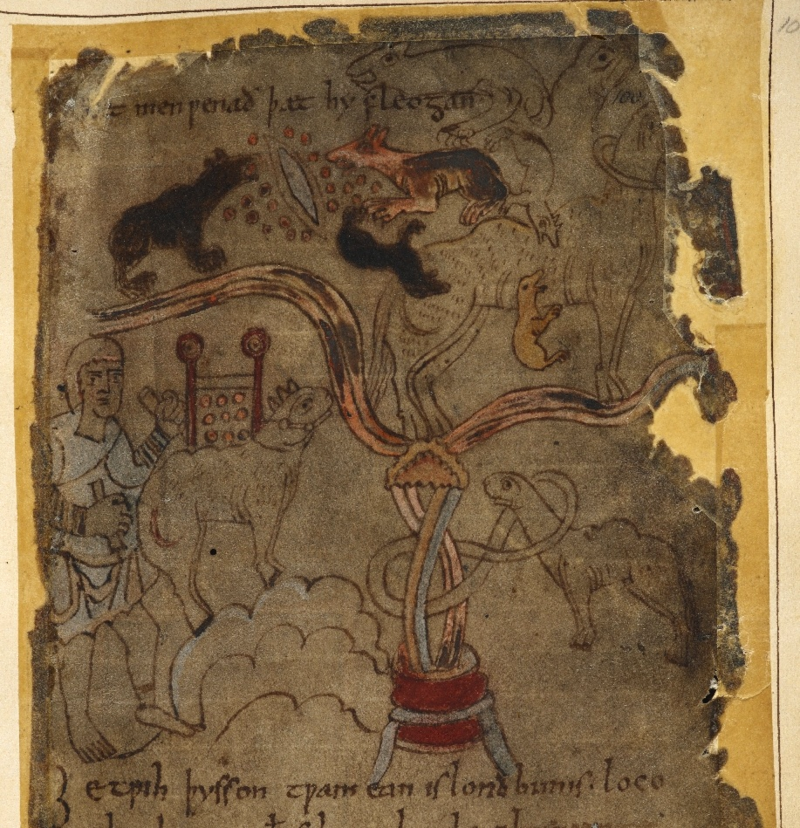 men ƿenað þæt hy fleogan
100
etƿih þysson tƿam ean is londbunis. loco